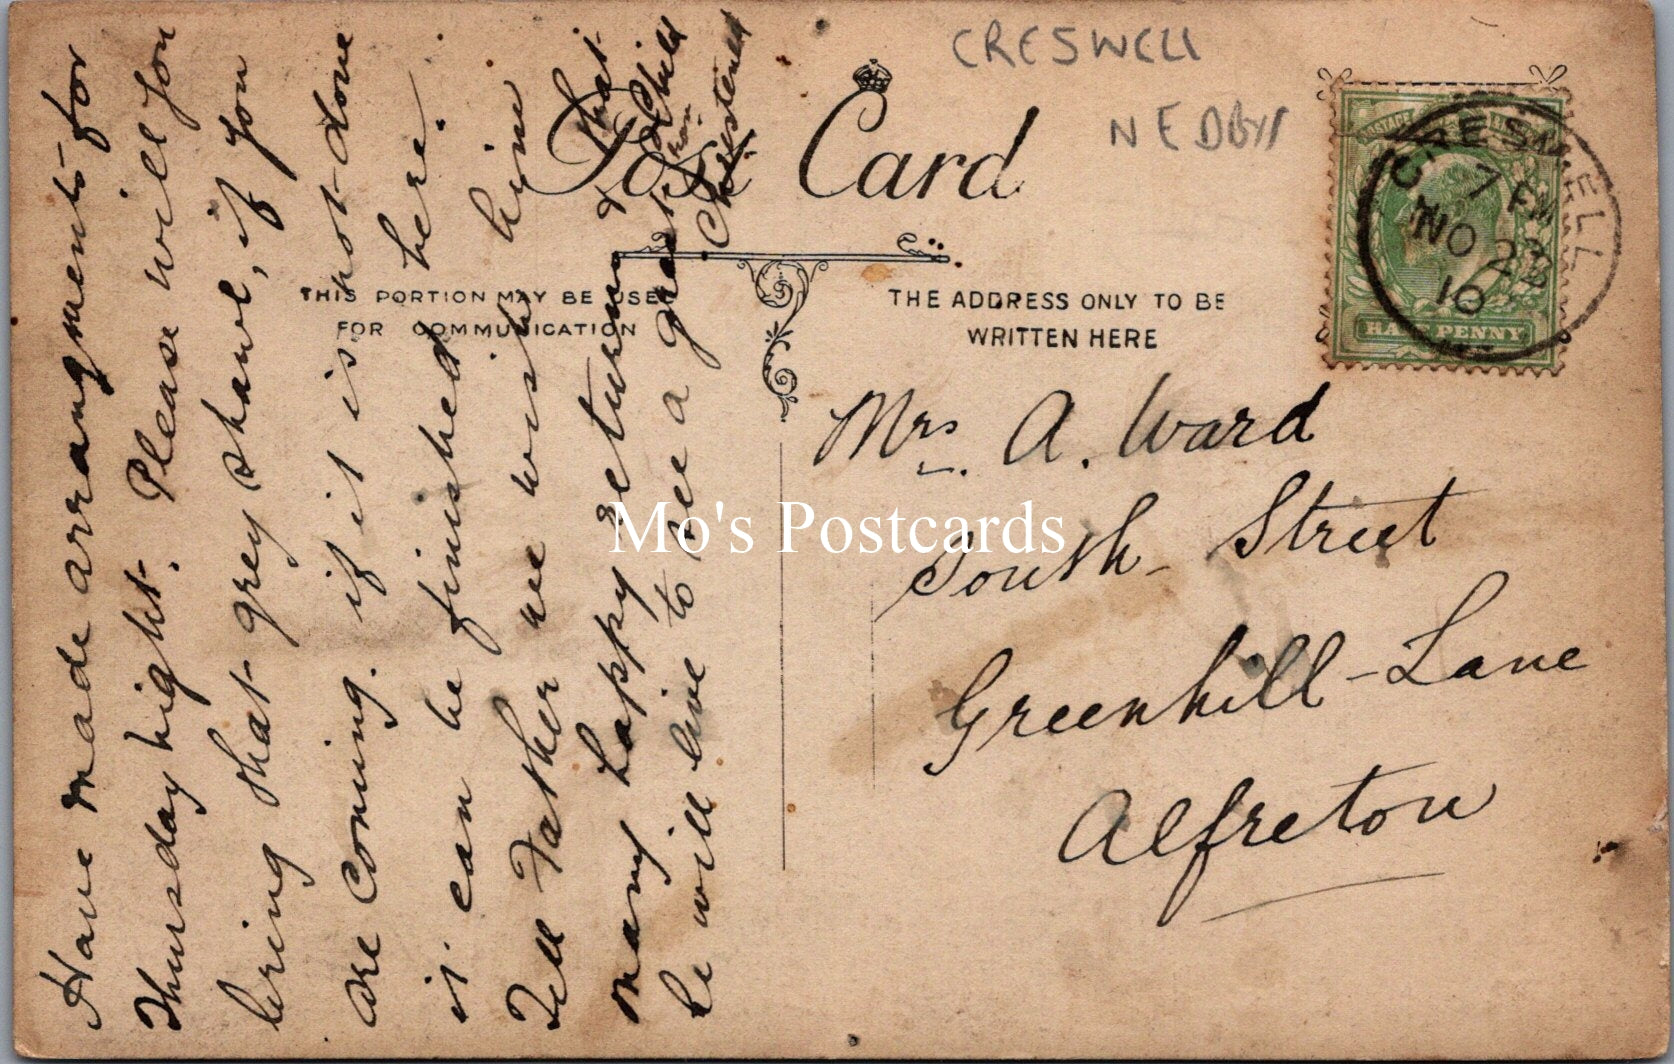 CRESWELL
N E DBYS
Post Card
THIS PORTION MAY BE USED
FOR COMMUNICATION
THE ADDRESS ONLY TO BE
WRITTEN HERE
POSTAGE
HALF PENNY
CRESWELL
7 PM
NO 22
10
Have made arrangments for
Thursday night. Please will you
bring that grey shawl, if you
are coming. if it is not done
it can be finished here.
Tell Father we wish him
many happy returns & that
he will live to see a great
Child
Christened
Mrs. A. Ward
South Street
Greenhill-Lane
Alfreton
Mo's Postcards